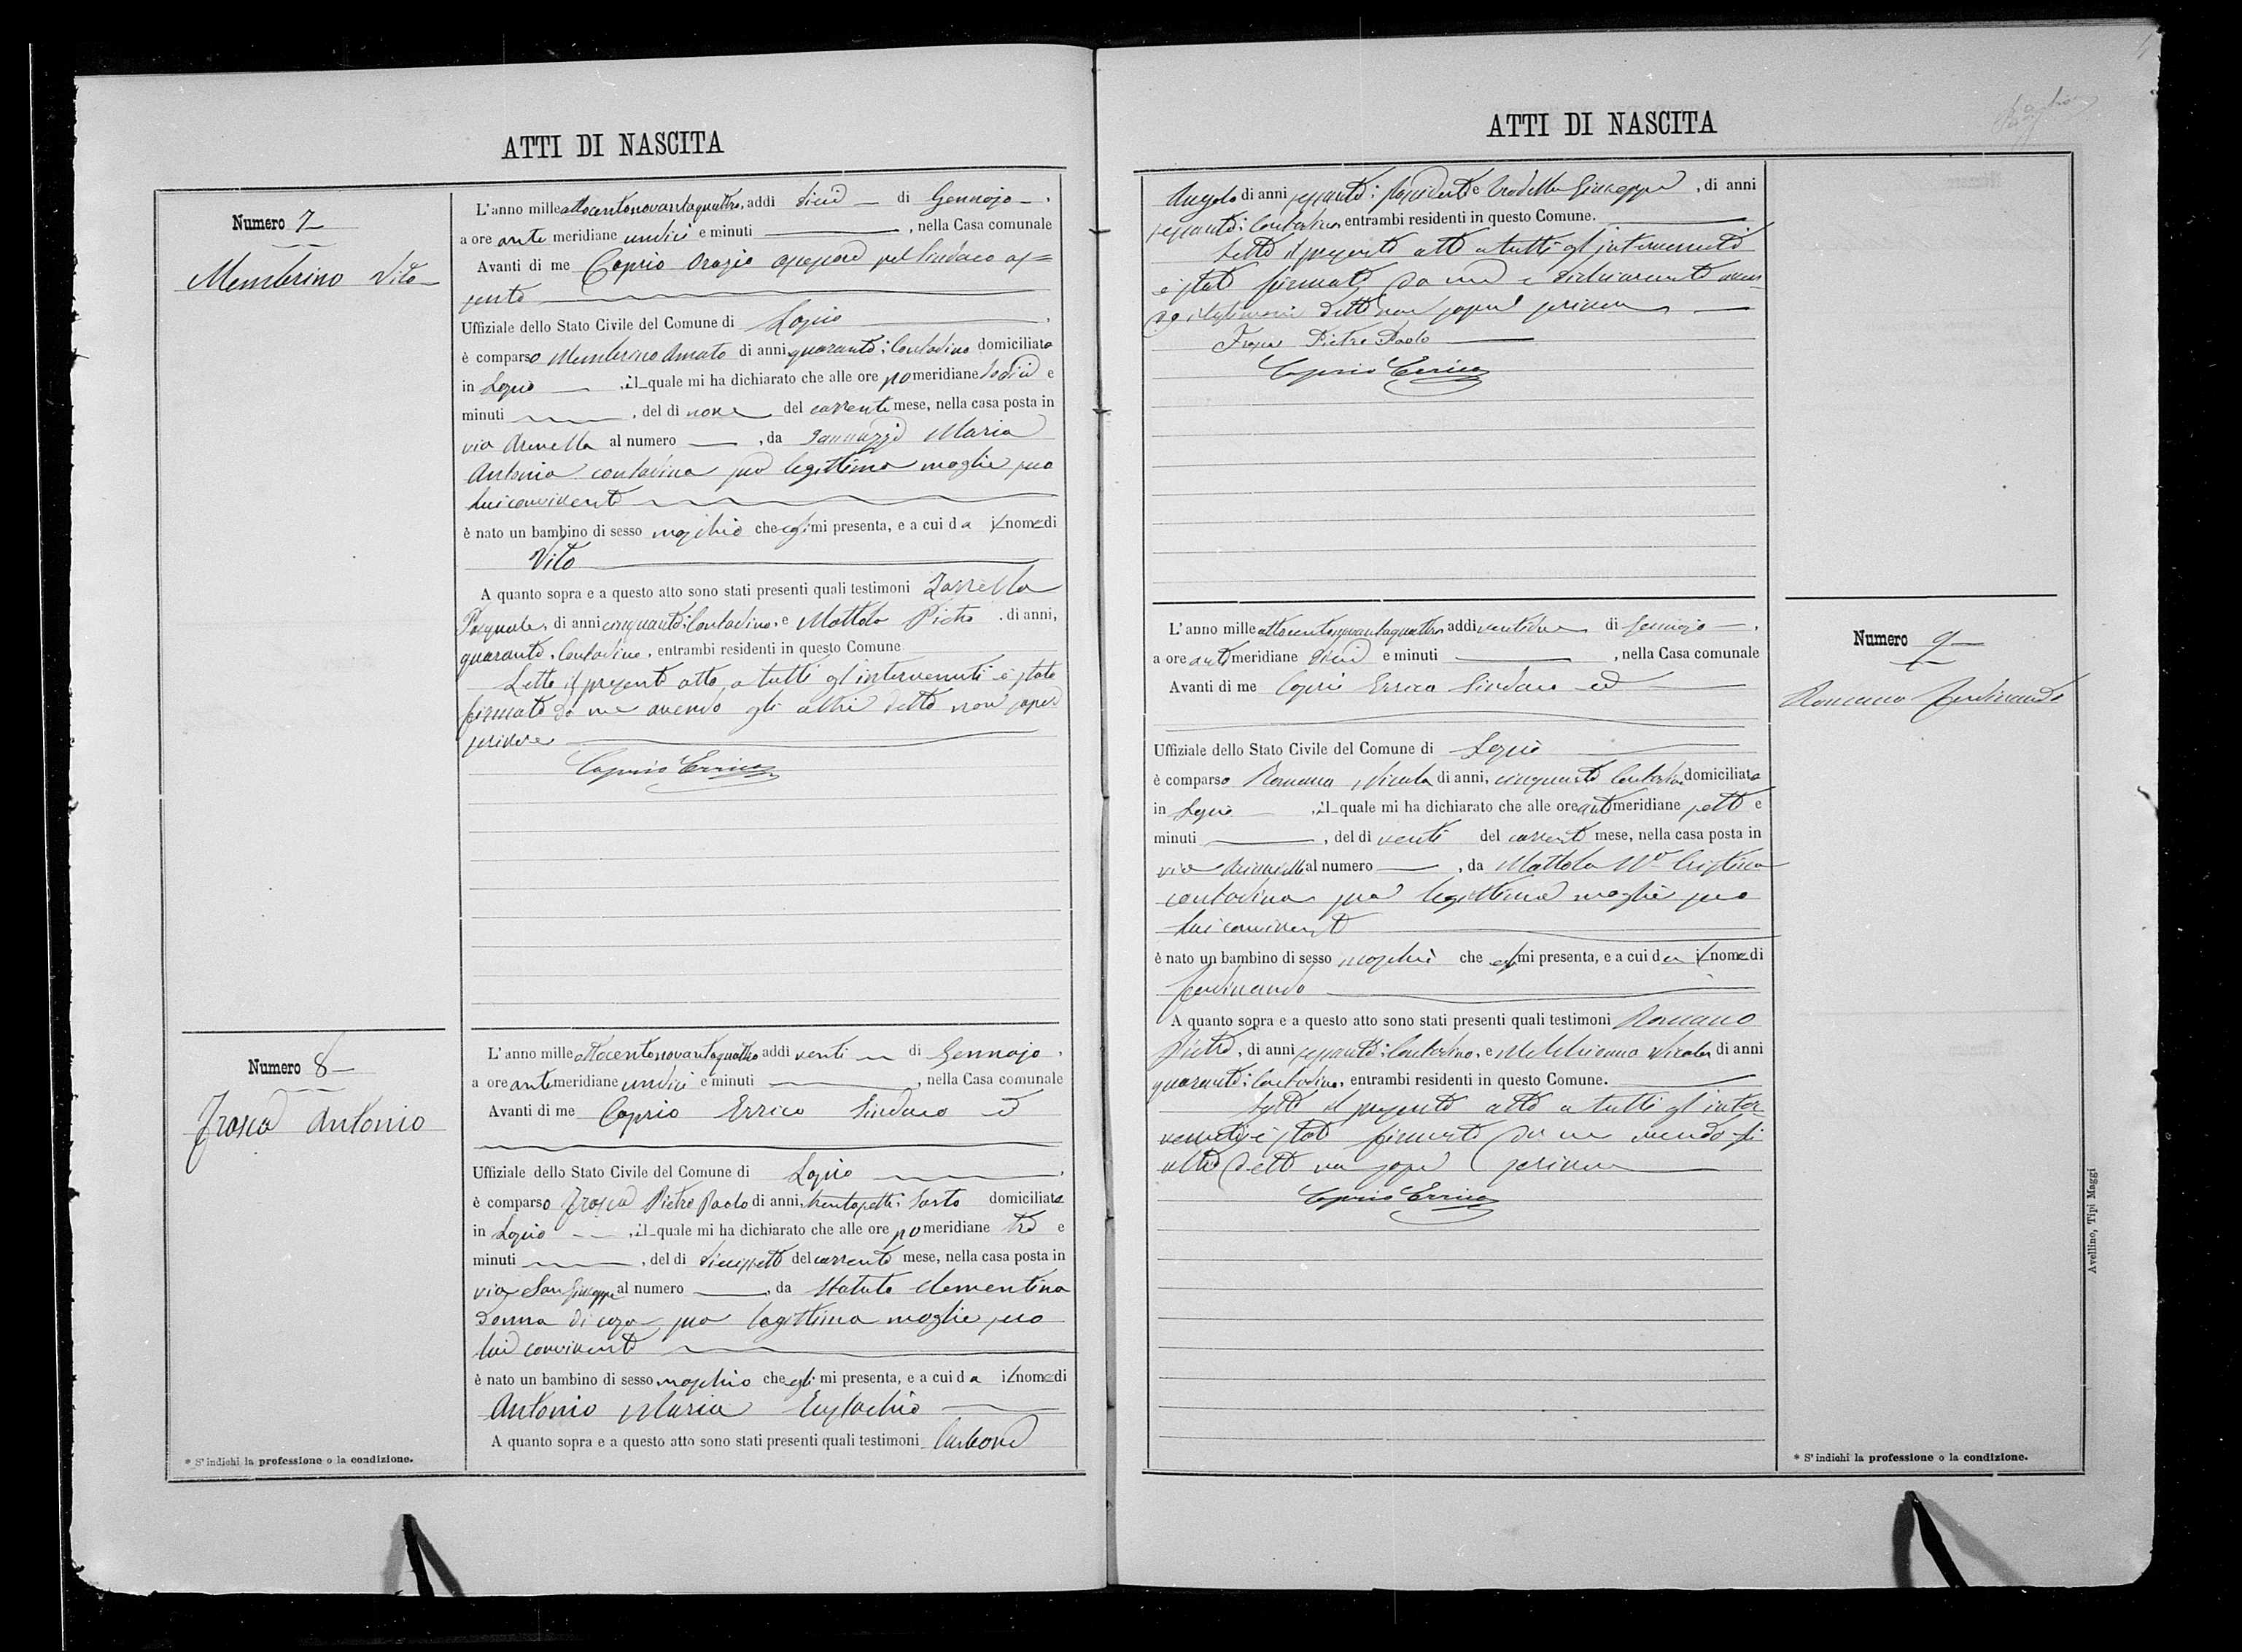 ATTI DI NASCITA
Numero 7
Memberino Vito
L'anno mille ottocentonovantaquattro, addì dieci di Gennajo,
a ore ante meridiane undici e minuti , nella Casa comunale
Avanti di me Caprio Orazio assessore pel Sindaco as=
sente
Uffiziale dello Stato Civile del Comune di Lapio
è comparso Memberino Amato di anni quaranta; Contadino domiciliato
in Lapio , il quale mi ha dichiarato che alle ore pomeridiane dodici e
minuti , del dì nove del corrente mese, nella casa posta in
via Arenella al numero , da Iannuzzi Maria
Antonia contadina sua legittima moglie seco
lui convivente
è nato un bambino di sesso maschio che egli mi presenta, e a cui da il nome di
Vito
A quanto sopra e a questo atto sono stati presenti quali testimoni Zarrella
Pasquale, di anni cinquanta; Contadino, e Mottola Pietro, di anni,
quaranta, Contadino, entrambi residenti in questo Comune
Letto il presente atto, a tutti gl'intervenuti è stato
firmato da me avendo gli altri detto non sapere
scrivere
Caprio Errico
Numero 8
Frasca Antonio
L'anno mille ottocentonovantaquattro addì venti di Gennajo,
a ore antemeridiane undici e minuti , nella Casa comunale
Avanti di me Caprio Errico Sindaco ed
Uffiziale dello Stato Civile del Comune di Lapio
è comparso Frasca Pietro Paolo di anni, trentasette; Sarto domiciliato
in Lapio , il quale mi ha dichiarato che alle ore pomeridiane tre e
minuti , del dì diecissette del corrente mese, nella casa posta in
via San Giuseppe al numero , da Statuto Clementina
Donna di casa sua legittima moglie seco
lui convivente
è nato un bambino di sesso maschio che egli mi presenta, e a cui da il nome di
Antonio Maria Eustachio
A quanto sopra e a questo atto sono stati presenti quali testimoni Carbone
* S'indichi la professione o la condizione.
ATTI DI NASCITA
Angelo di anni sessanta; possidente e Giuseppe, di anni
sessanta; Contadino, entrambi residenti in questo Comune.
Letto il presente atto a tutti gl'intervenuti
è stato firmato da me e dichiarante aven-
do i testimoni detto non sapere scrivere
Frasca Pietro Paolo
Caprio Errico
Numero 9
Romano Ferdinando
L'anno mille ottocentonovantaquattro addì ventidue di Gennajo,
a ore antimeridiane dieci e minuti , nella Casa comunale
Avanti di me Caprio Errico Sindaco ed
Uffiziale dello Stato Civile del Comune di Lapio
è comparso Romano Nicola di anni, cinquanta Contadino domiciliato
in Lapio , il quale mi ha dichiarato che alle ore antimeridiane sette e
minuti , del dì venti del corrente mese, nella casa posta in
via al numero , da Mottola Ma Cristina
contadina sua legittima moglie seco
lui convivente
è nato un bambino di sesso maschio che egli mi presenta, e a cui da il nome di
Ferdinando
A quanto sopra e a questo atto sono stati presenti quali testimoni Romano
Pietro, di anni sessanta; Contadino, e Nicola di anni
quaranta; Contadino, entrambi residenti in questo Comune.
Letto il presente atto a tutti gl'inter-
venuti è stato firmato da me avendo gli
altri detto non sapere scrivere
Caprio Errico
* S'indichi la professione o la condizione.
Avellino, Tipi Maggi